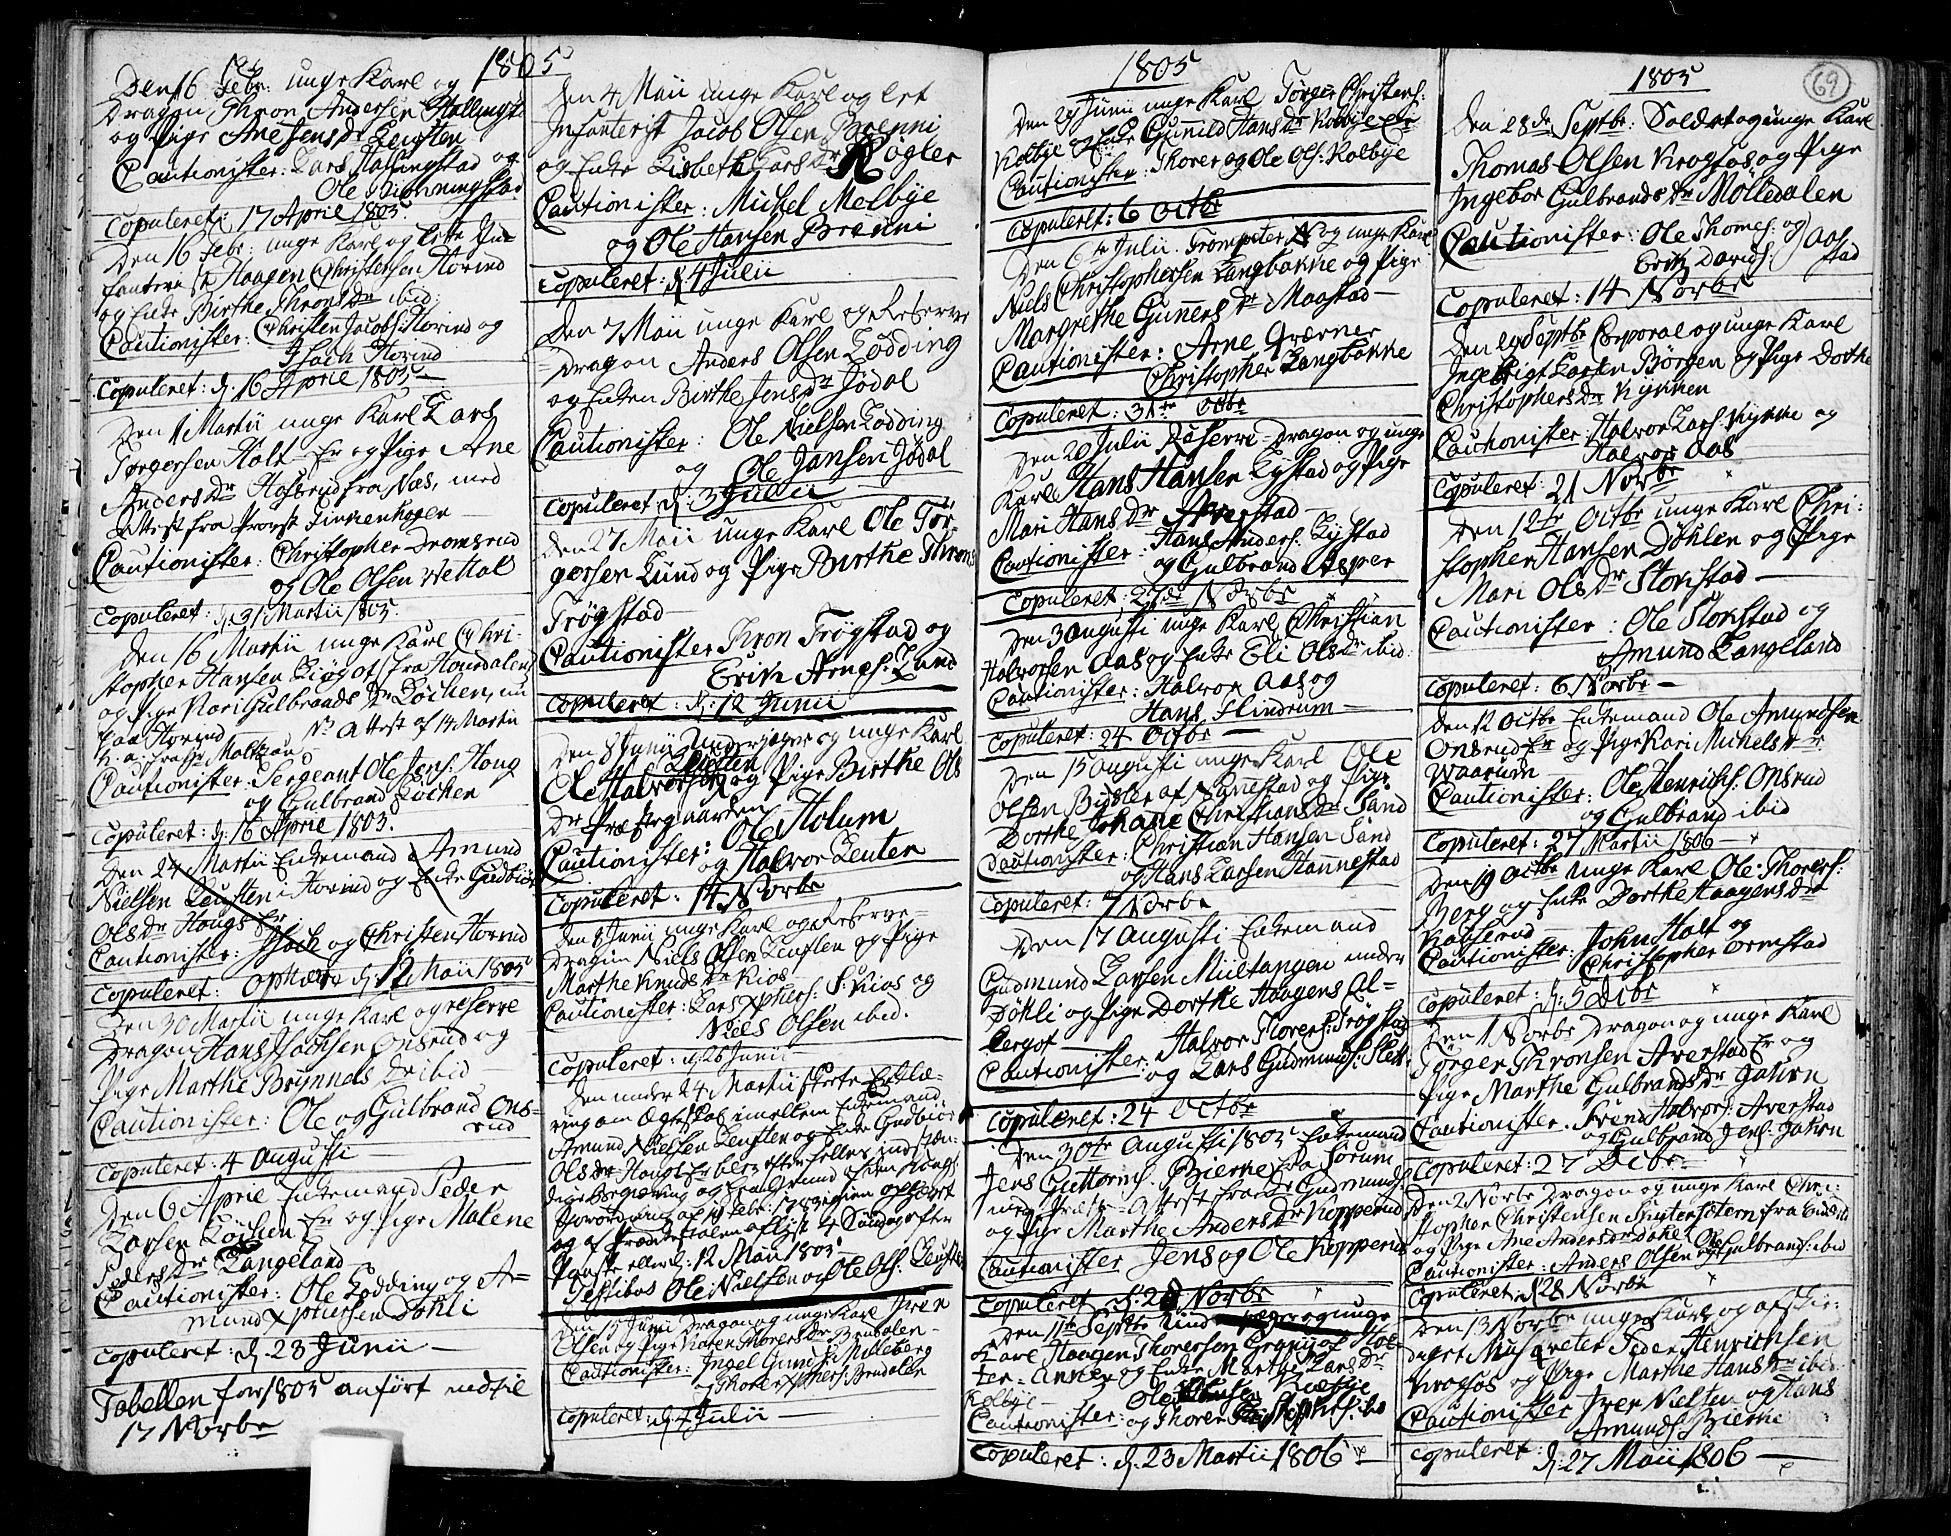 1805
Den 16 Febr: unge Karl og
Dragon Thron Andersen Hollingst
og Pige Ane Jens Dr Leusten
Cautionister: Lars Hollingstad og
Ole Rønningstad
Copuleret: 17 April 1805.
Den 16 Febr: unge Karl og lette In-
fanterist Haagen Christensen Horind
og Enke Birthe Throns Dr ibid:
Cautionister: Christen Jacobs: Horind og
Isach Horind
Copuleret: d. 16 Aprie 1805 —
Den 1 Martii unge Karl Lars
Torgersen Holt Er og Pige Ane
Anders Dr Hosbrud fra Næs, med
Attest fra Provst Finkenhagen
Cautionister: Christopher Dromsrud
og Ole Olsen Wettal
Copuleret: d. 31 Martii 1805.
Den 16 Martii unge Karl Chri-
stopher Hansen Biøgot (fra Hourdalen)
og Pige Kari Gulbrands Dr Løchen, nu
paa Horind — No Attest af 14 Martii
Cautionister: Sergeant Ole Jens: Houg
og Gulbrand Løchen
Copuleret: d. 16 Aprie 1805.
Den 24 Martii Enkemand Amund
Nielsen Leusten i Horind og Enke Gudbiør
Ols Dr Hougs Er
Cautionister: Isach og Christen Horind
Copuleret: Ophævet d. 12 Maii 1805
Den 30 Martii unge Karl og reserve
Dragon Hans Isachsen Onsrud og
Pige Marthe Brynnels Dr ibid
Cautionister: Ole og Gulbrand Ons-
rud
Copuleret: 4 Augusti —
Den 6 Aprie Enkemand Peder
Larsen Løchen Er og Pige Malene
Peders Dr Langeland
Cautionister: Ole Lodding og A-
mund Xphersen Dohli
Copuleret: d. 23 Junii —
Tabellen for 1805 anført indtil
17 Norbr
Den 4 Maii unge Karl og let
Infanterist Jacob Olsen Brenni
og Enke Lisbeth Lars Dr Kogler
Cautionister: Michel Melbye
og Ole Hansen Brenni
Copuleret: d. 4 Julii
Den 7 Maii unge Karl og Reserve
Dragon Anders Olsen Lodding
og Enken Birthe Jens Dr Jødal
Cautionister: Ole Nielsen Lodding
og Ole Jansen Jødal
Copuleret d. 3 Julii
Den 27 Maii unge Karl Ole Tor-
gersen Lund og Pige Birthe Throns
Trøgstad
Cautionister Thron Trøgstad og
Erik Arnes: Lund
Copuleret: d. 12 Junii
Den 8 Junii Underjæger og unge Karl
Leusten
Ole Halvorsen og Pige Birthe Ols
Dr Præstegaarden
Cautionister: Ole Holum
og Halvor Leuten
Copuleret: 14 Norbr
Den 8 Junii unge Karl og Reserve-
Dragon Niels Olsen Leusten og Pige
Marthe Knuds Dr Kios
Cautionister: Lars Xphers: S: Kios og
Niels Olsen ibid.
Copuleret: d. 26 Junii —
Den under 24 Martii skete Erklæ-
ring om Ægteskab imellem Enkemand
Amund Nielsen Leusten og Enke Gudbiør
Ols Dr Hougs Er blev efter felles indstæn-
dige Begiæring og
Forordning af 19 Febr: 1783 igien ophævet
og af Prædikestolen aflyst 4 Søndag efter
Paaske eller d. 12 Maii 1805 —
Testibus Ole Nielsen og Ole Ols: Leusten
Den 15 Junii Dragon og unge Karl Iver
Olsen og Pige Karen Thorers Dr Brudalen
Cautionister: Ingel Gunds: Milleberg
og Thorer Xphers: Brudalen
Copuleret: d. 4 Julii —
1805
Den 29 Junii unge Karl Torger Christens:
Kolbye og Enke Gunnild Hans Dr Kolbye Er
Cautionister: Thorer og Ole Ols: Kolbye
Copuleret: 6 Octbr
Den 6te Julii Trompeter og unge Karl
Niels Christophersen Langbakke og Pige
Margrethe Gunners Dr Maastad —
Cautionister: Arne Qværner
Christopher Langbakke
Copuleret: 31te Octbr
Den 20 Julii Reserve-Dragon og unge
Karl Hans Hansen Lystad og Pige
Mari Hans Dr Averstad —
Cautionister: Hans Anders: Lystad
og Gulbrand Asper
Copuleret: 27de Norbr
Den 3 Augusti unge Karl Christian
Halvorsen Aas og Enke Eli Ols Dr ibid:
Cautionister: Halvor Aas og
Hans Flindrum —
Copuleret: 24 Octbr —
Den 15 Augusti unge Karl Ole
Olsen Bidler af Nannestad og Pige
Dorthe Johane Christians Dr Sand
Cautionister: Christian Hansen Sand
og Hans Larsen Hannestad
Copuleret: 7 Norbr
Den 17 Augusti Enkemand
Gudmund Larsen Miiltangen under
Døhli og Pige Dorthe Haagens Al-
bergot —
Cautionister: Halvor Thorers: Trøgstad
og Lars Gudmunds: Slett
Copuleret: 24 Octbr
Den 30te Augusti 1805 Enkemand
Jens Guttorms: Bierke fra Sørum
og Pige Marthe Anders Dr Kopperud
Cautionister Jens og Ole Kopperud
Copuleret d. 20 Norbr
Den 11te Septbr Und og unge
Karl Haagen Thorersen
Kolbye —
Copuleret: d. 23 Martii 1806
1805
69
Den 28de Septbr: Soldat og unge Karl
Thomas Olsen Krogfos og Pige
Ingebor Gulbrands Dr Mölledalen
Cautionister: Ole Thomes: og
Erik Davids: } Aas
stad
Copuleret: 14 Norbr
Den 29 Septbr Corporal og unge Karl
Ingebrigt Larsen Börsen og Pige Dorthe
Christophers Dr Nykken
Cautionister: Halvor Lars: Nykke og
Halvor Aas
Copuleret: 21 Norbr
Den 12te Octbr unge Karl Chri:
stopher Hansen Döhlen og Pige
Mari Ols Dr Storstad —
Cautionister: Ole Storstad og
Amund Langeland
Copuleret: 6 Norbr —
Den 12 Octbr Enkemand Ole Amundsen
Onsrud Er og Pige Kari Michels Dr
Waarum —
Cautionister: Ole Henrichs: Onsrud
og Gulbrand ibid
Copuleret: 27 Martii 1806 —
Den 19 Octbr unge Karl Ole Thorers:
Berg og Enke Dorthe Haagens Dr
Kobserud
Cautionister: John Holt og
Christopher Ormstad
Copuleret: d. 5 Dcbr
Den 1 Norbr Dragon og unge Karl
Torger Thronsen Averstad Er og
Pige Marthe Gulbrands Dr Jahrn
Cautionister: Svend Halvors: Averstad
og Gulbrand Jens: Jahrn
Copuleret: 27 Dcbr —
Den 2 Norbr Dragon og unge Karl Chri:
stopher Christensen
og Pige Ane Anders Dr Bakke
Cautionister: Anders Olsen og Gulbrand ibid
Copuleret: d. 28 Norbr
Den 13 Norbr unge Karl og afskie:
diget Musqueter Peder Henrichsen
Krogfos og Pige Marthe Hans Dr ibid:
Cautionister Iver Nielsen og Hans
Amunds: Bierke
Copuleret: d. 27 Maii 1806 —